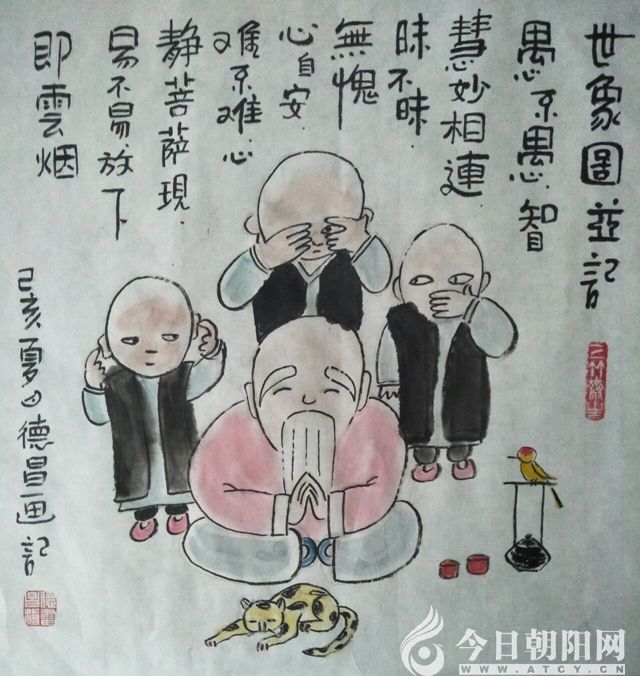 世象圖並記
愚不愚智
慧妙相連
昧不昧
無愧
心自安
难不难心
静菩萨現
易不易放下
即雲烟
己亥夏日德昌画記
今日朝阳网
WWW.ATCY.CN